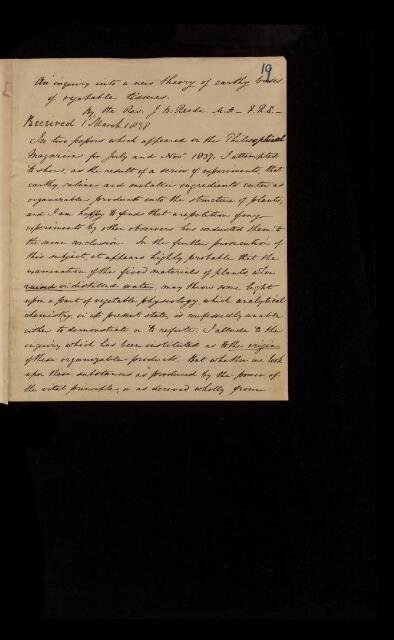 19
An inquiry into a new theory of earthy bases
of vegetable tissues.
By the Rev. J. B. Reade M.A - F.R.S. -
Received 1 March 1838
In two papers which appeared in the Philosophical
Magazine for July and Nov. 1837, I attempted
to shew, as the result of a series of experiments, that
earthy, saline and metallic ingredients enter as
organizable products into the structure of plants,
and I am happy to find that a repetition of my
experiments by other observers has conducted them to
the same conclusion. In the further prosecution of
this subject it appears highly probable that the
examination of the fixed materials of plants, when
raised in distilled water, may throw some light
upon a point of vegetable physiology which analytical
chemistry, in its present state, is confessedly unable
either to demonstrate or to refute. I allude to the
inquiry which has been instituted as to the origin
of these organizable products. But whether we look
upon these substances as produced by the power of
the vital principle, or as derived wholly from